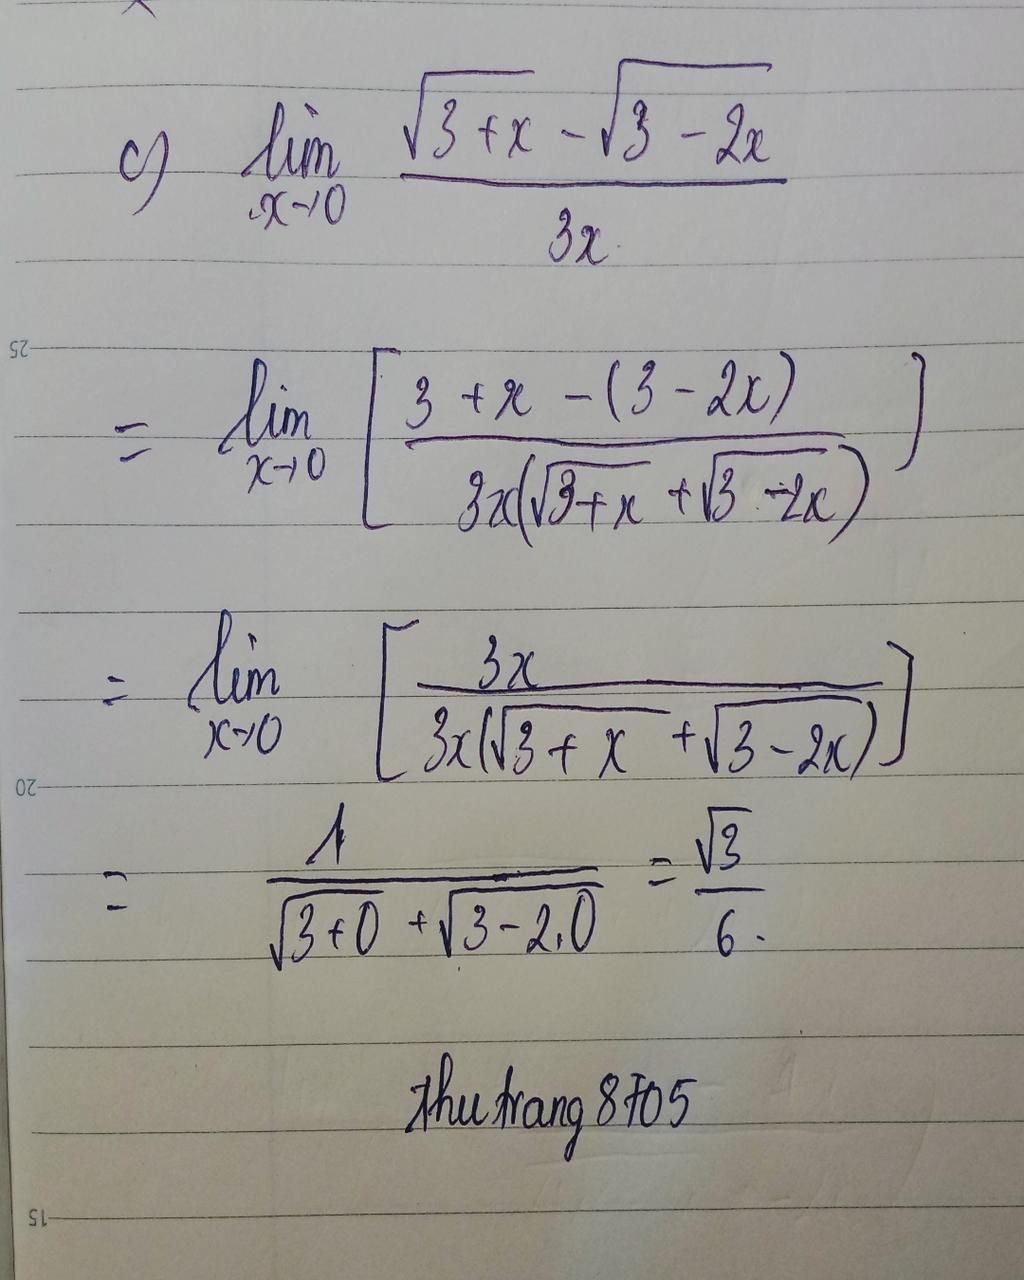 c) lim x→0 (√(3+x) - √(3-2x)) / 3x
25
= lim x→0 [ (3+x-(3-2x)) / (3x(√(3+x) + √(3-2x))) ]
= lim x→0 [ 3x / (3x(√(3+x) + √(3-2x))) ]
20
= 1 / (√(3+0) + √(3-2.0)) = √3 / 6.
thutrang8705
15